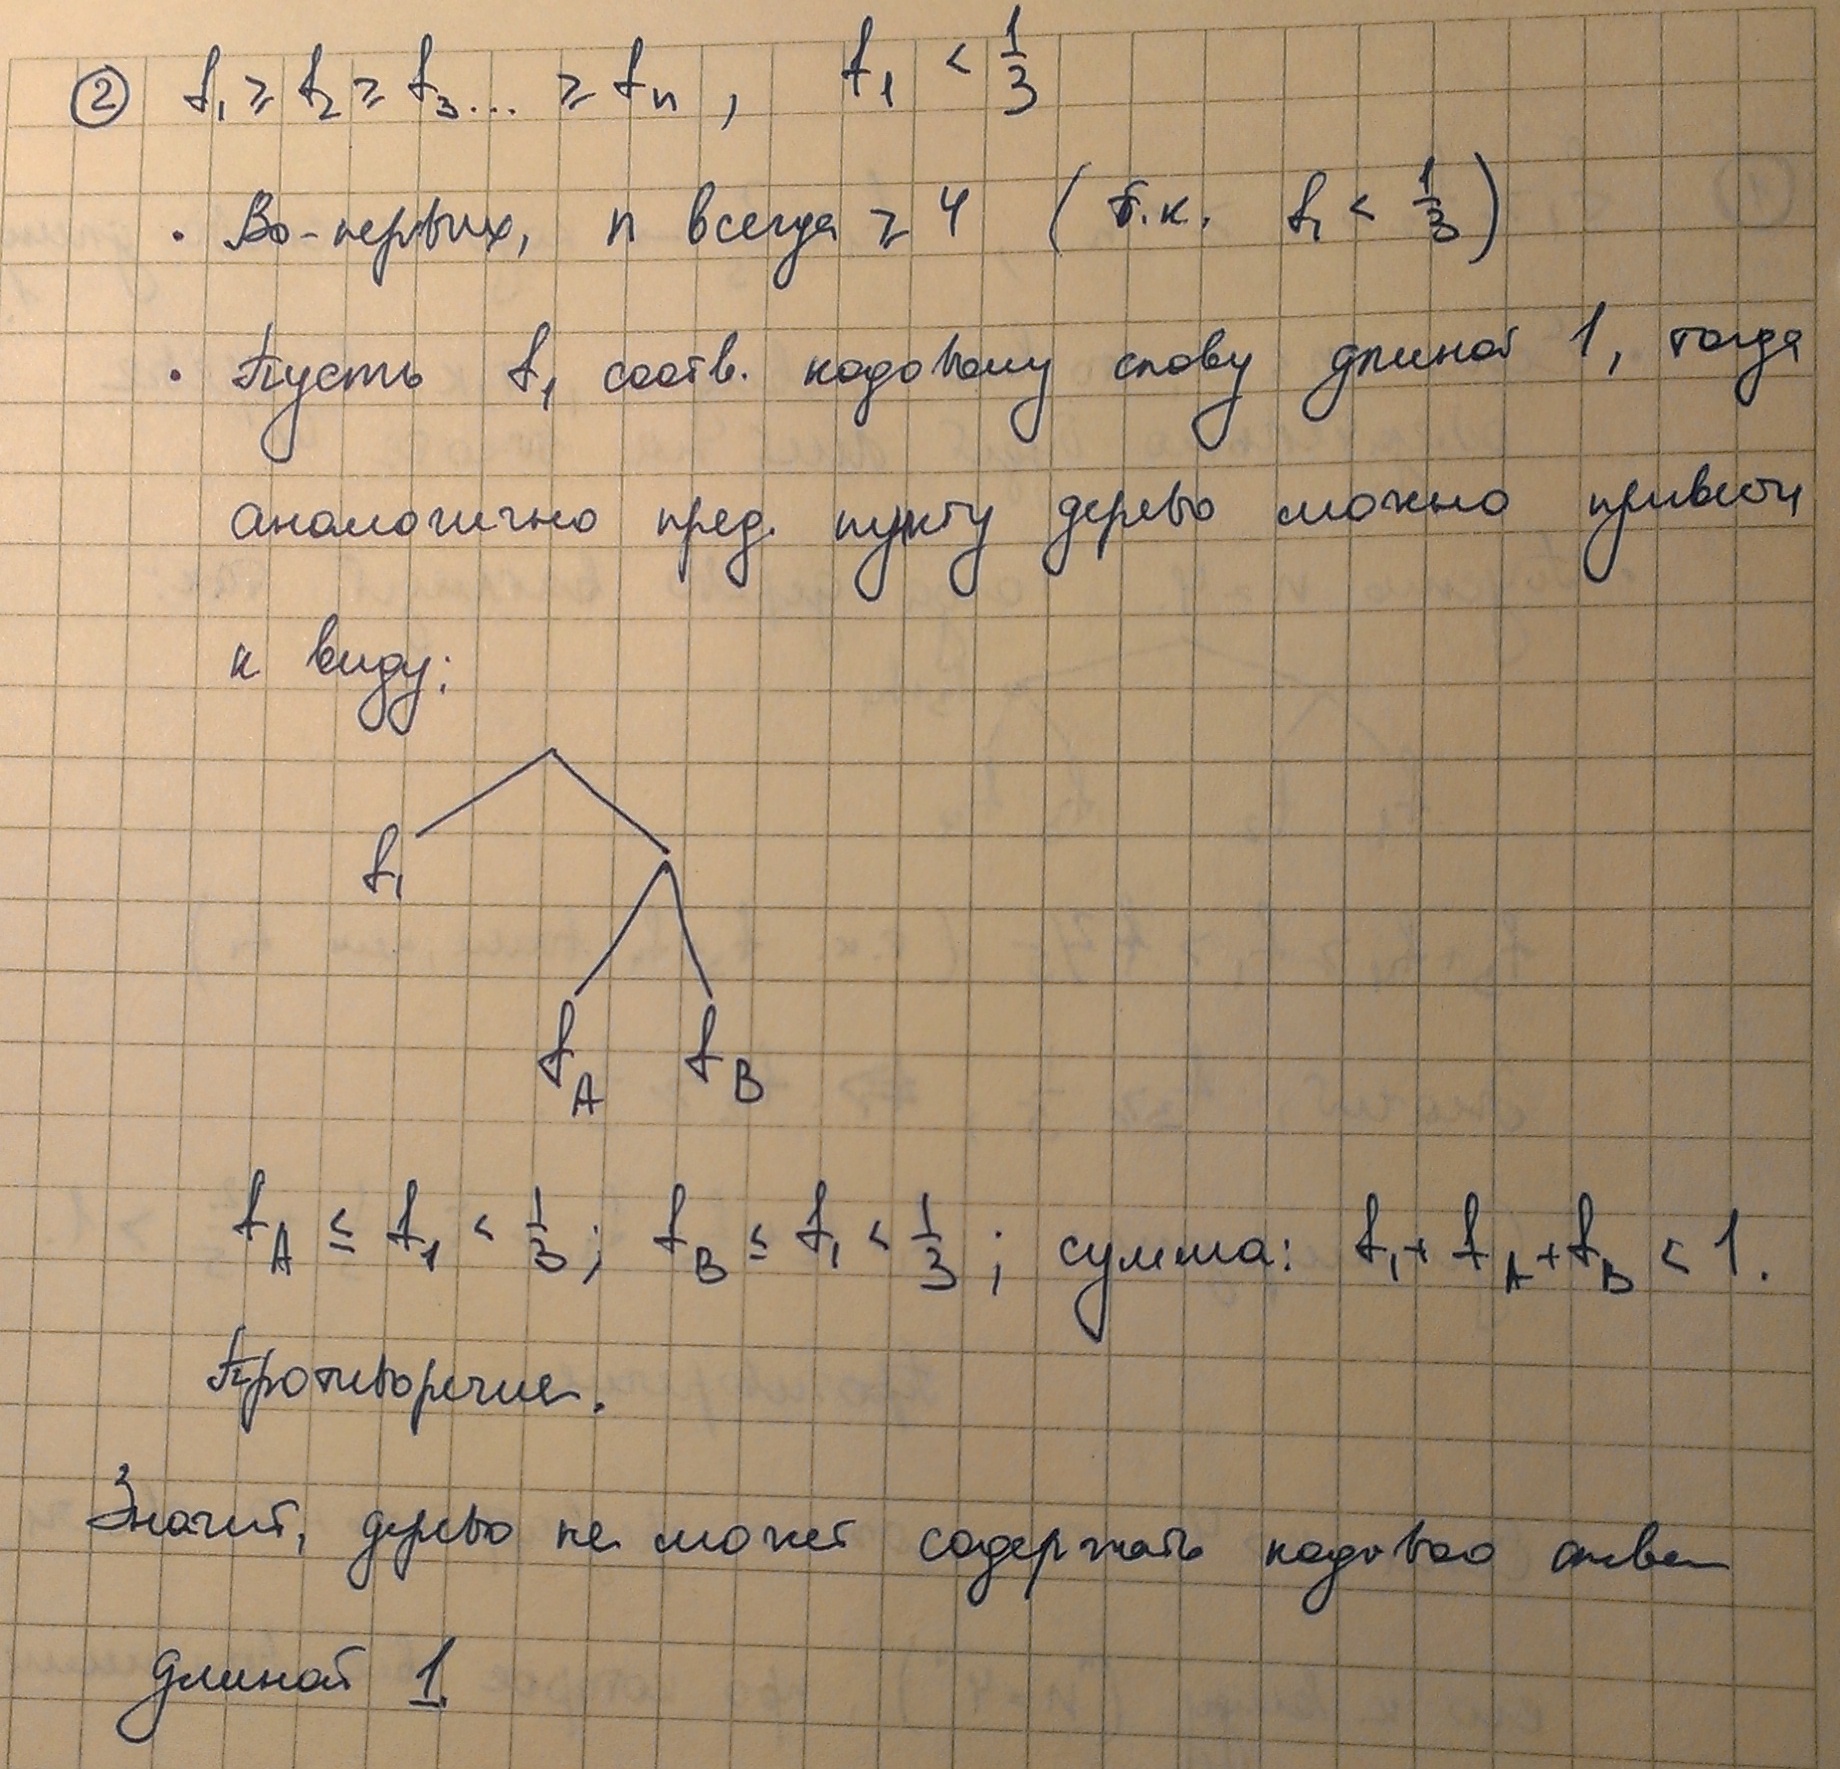 ② f₁ ≥ f₂ ≥ f₃... ≥ fₙ, f₁ < 1/3
· Во-первых, n всегда ≥ 4 (т.к. f₁ < 1/3)
· Пусть f₁ соотв. кодовому слову длиной 1, тогда
аналогично пред. пункту дерево можно привести
к виду:
f₁
f_A f_B
f_A ≤ f₁ < 1/3; f_B ≤ f₁ < 1/3; сумма: f₁ + f_A + f_B < 1.
Противоречие.
Значит, дерево не может содержать кодовое слово
длиной 1.